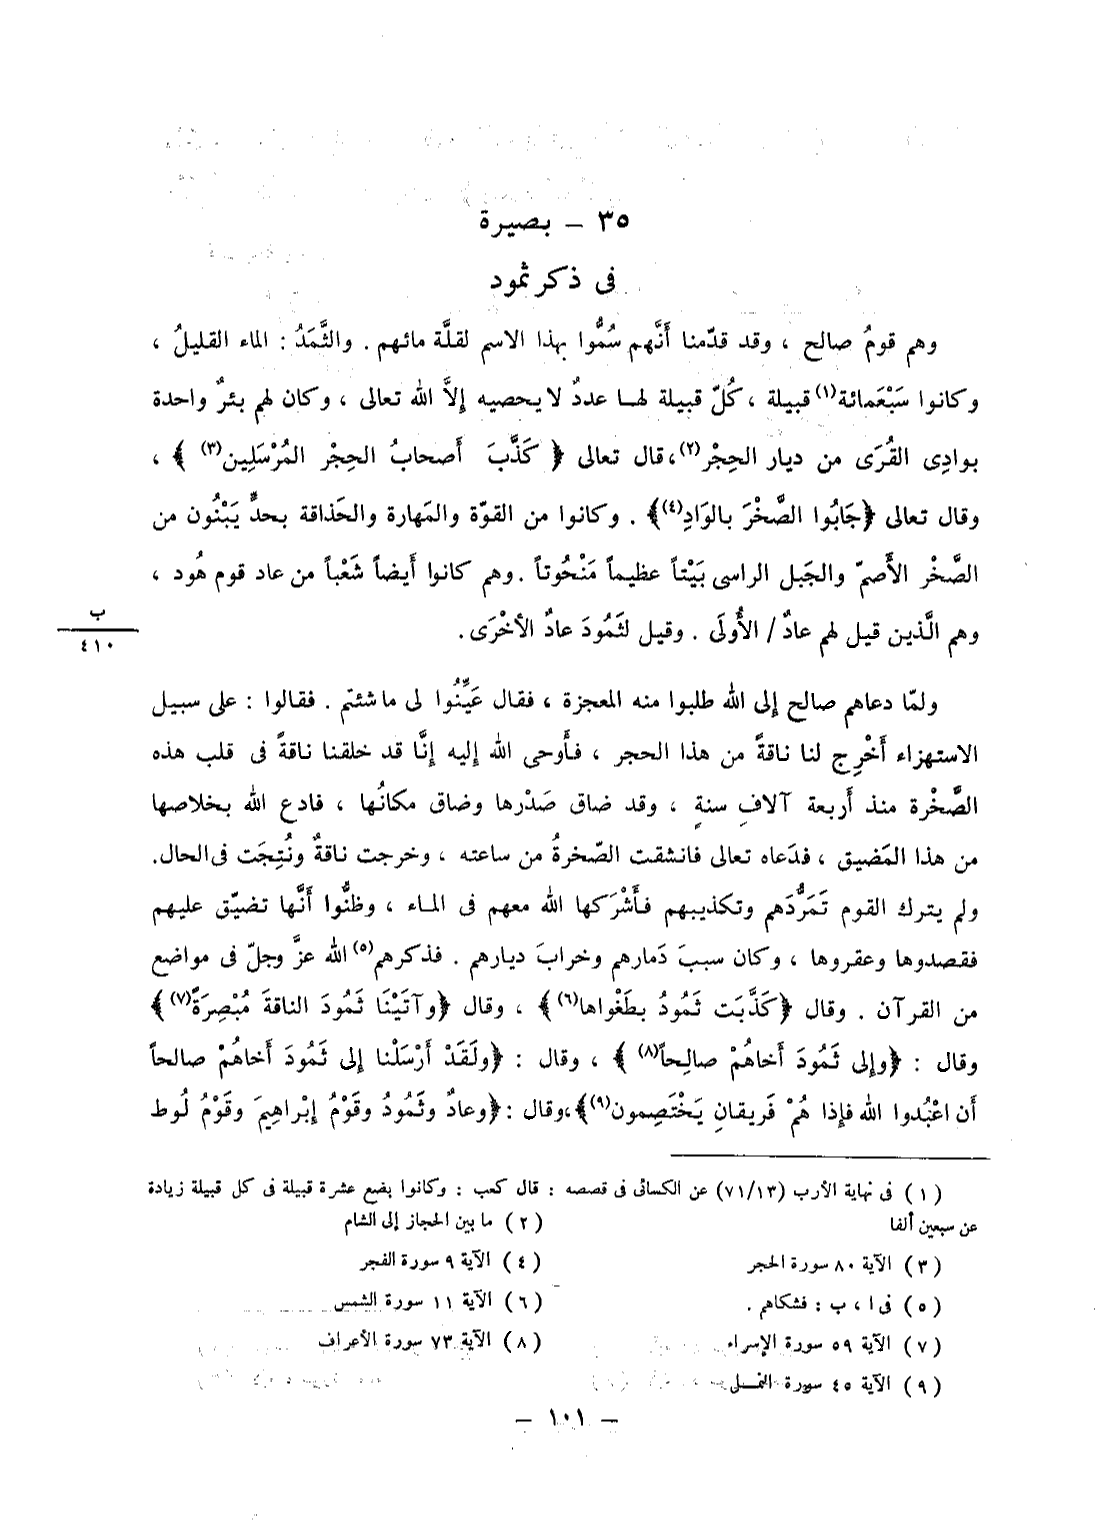 ٣٥ – بصيرة
فى ذكر ثمود
وهم قومُ صالح ، وقد قدّمنا أَنَّهم سُمُّوا بهذا الاسم لقلَّة مائهم . والثَّمَدُ : الماء القليلُ ،
وكانوا سَبْعَمائة(١) قبيلة ، كُلّ قبيلة لهـا عددٌ لا يحصيه إلاَّ الله تعالى ، وكان لهم بئرٌ واحدة
بوادِى القُرَى من ديار الحِجْر(٢)، قال تعالى ﴿ كَذَّبَ أَصحابُ الحِجْر المُرْسَلِين(٣) ﴾ ،
وقال تعالى ﴿جَابُوا الصَّخْرَ بالوَادِ(٤)﴾ . وكانوا من القوّة والمَهارة والحَذاقة بحدٍّ يَبْنُون من
الصَّخْر الأَصمّ والجَبل الراسى بَيْتاً عظيماً مَنْحُوتاً . وهم كانوا أَيضاً شَعْباً من عاد قوم هُود ،
وهم الَّذين قيل لهم عادٌ / الأُولَى . وقيل لثَمُودَ عادٌ الأخْرَى .
ب
٤١٠
ولمّا دعاهم صالح إلى الله طلبوا منه المعجزة ، فقال عَيِّنُوا لى ما شئتم . فقالوا : على سبيل
الاستهزاء أَخْرِج لنا ناقةً من هذا الحجر ، فأَوحى الله إليه إنَّا قد خلقنا ناقةً فى قلب هذه
الصَّخْرة منذ أَربعة آلافِ سنةٍ ، وقد ضاق صَدْرها وضاق مكانُها ، فادع الله بخلاصها
من هذا المَضيق ، فدَعاه تعالى فانشقت الصّخرةُ من ساعته ، وخرجت ناقةٌ ونُتِجَت فى الحال.
ولم يترك القوم تَمَرُّدَهم وتكذيبهم فأَشْرَكها الله معهم فى المـاء ، وظنُّوا أَنَّها تضيّق عليهم
فقصدوها وعقروها ، وكان سببَ دَمارهم وخرابَ ديارهم . فذكرهم(٥) الله عزَّ وجلّ فى مواضع
من القرآن . وقال ﴿كَذَّبَت ثَمُودُ بطَغْواها(٦)﴾ ، وقال ﴿وآتَيْنَا ثَمُودَ الناقةَ مُبْصِرَةً(٧)﴾
وقال : ﴿وإلى ثَمُودَ أَخاهُمْ صالِحاً(٨) ﴾ ، وقال : ﴿ولَقَدْ أَرْسَلْنا إلى ثَمُودَ أَخاهُمْ صالحاً
أَن اعْبُدوا الله فإذا هُمْ فَريقانِ يَخْتَصِمون(٩)﴾، وقال : ﴿وعادٌ وثَمُودُ وقَوْمُ إبْراهيمَ وقَوْمُ لُوط
(١) فى نهاية الأرب (٧١/١٣) عن الكسائى فى قصصه : قال كعب : وكانوا بضع عشرة قبيلة فى كل قبيلة زيادة
عن سبعين ألفا
(٢) ما بين الحجاز إلى الشام
(٣) الآية ٨٠ سورة الحجر
(٤) الآية ٩ سورة الفجر
(٥) فى ا ، ب : فشكاهم .
(٦) الآية ١١ سورة الشمس
(٧) الآية ٥٩ سورة الإسراء
(٨) الآية ٧٣ سورة الأعراف
(٩) الآية ٤٥ سورة النمـل
– ١٠١ –